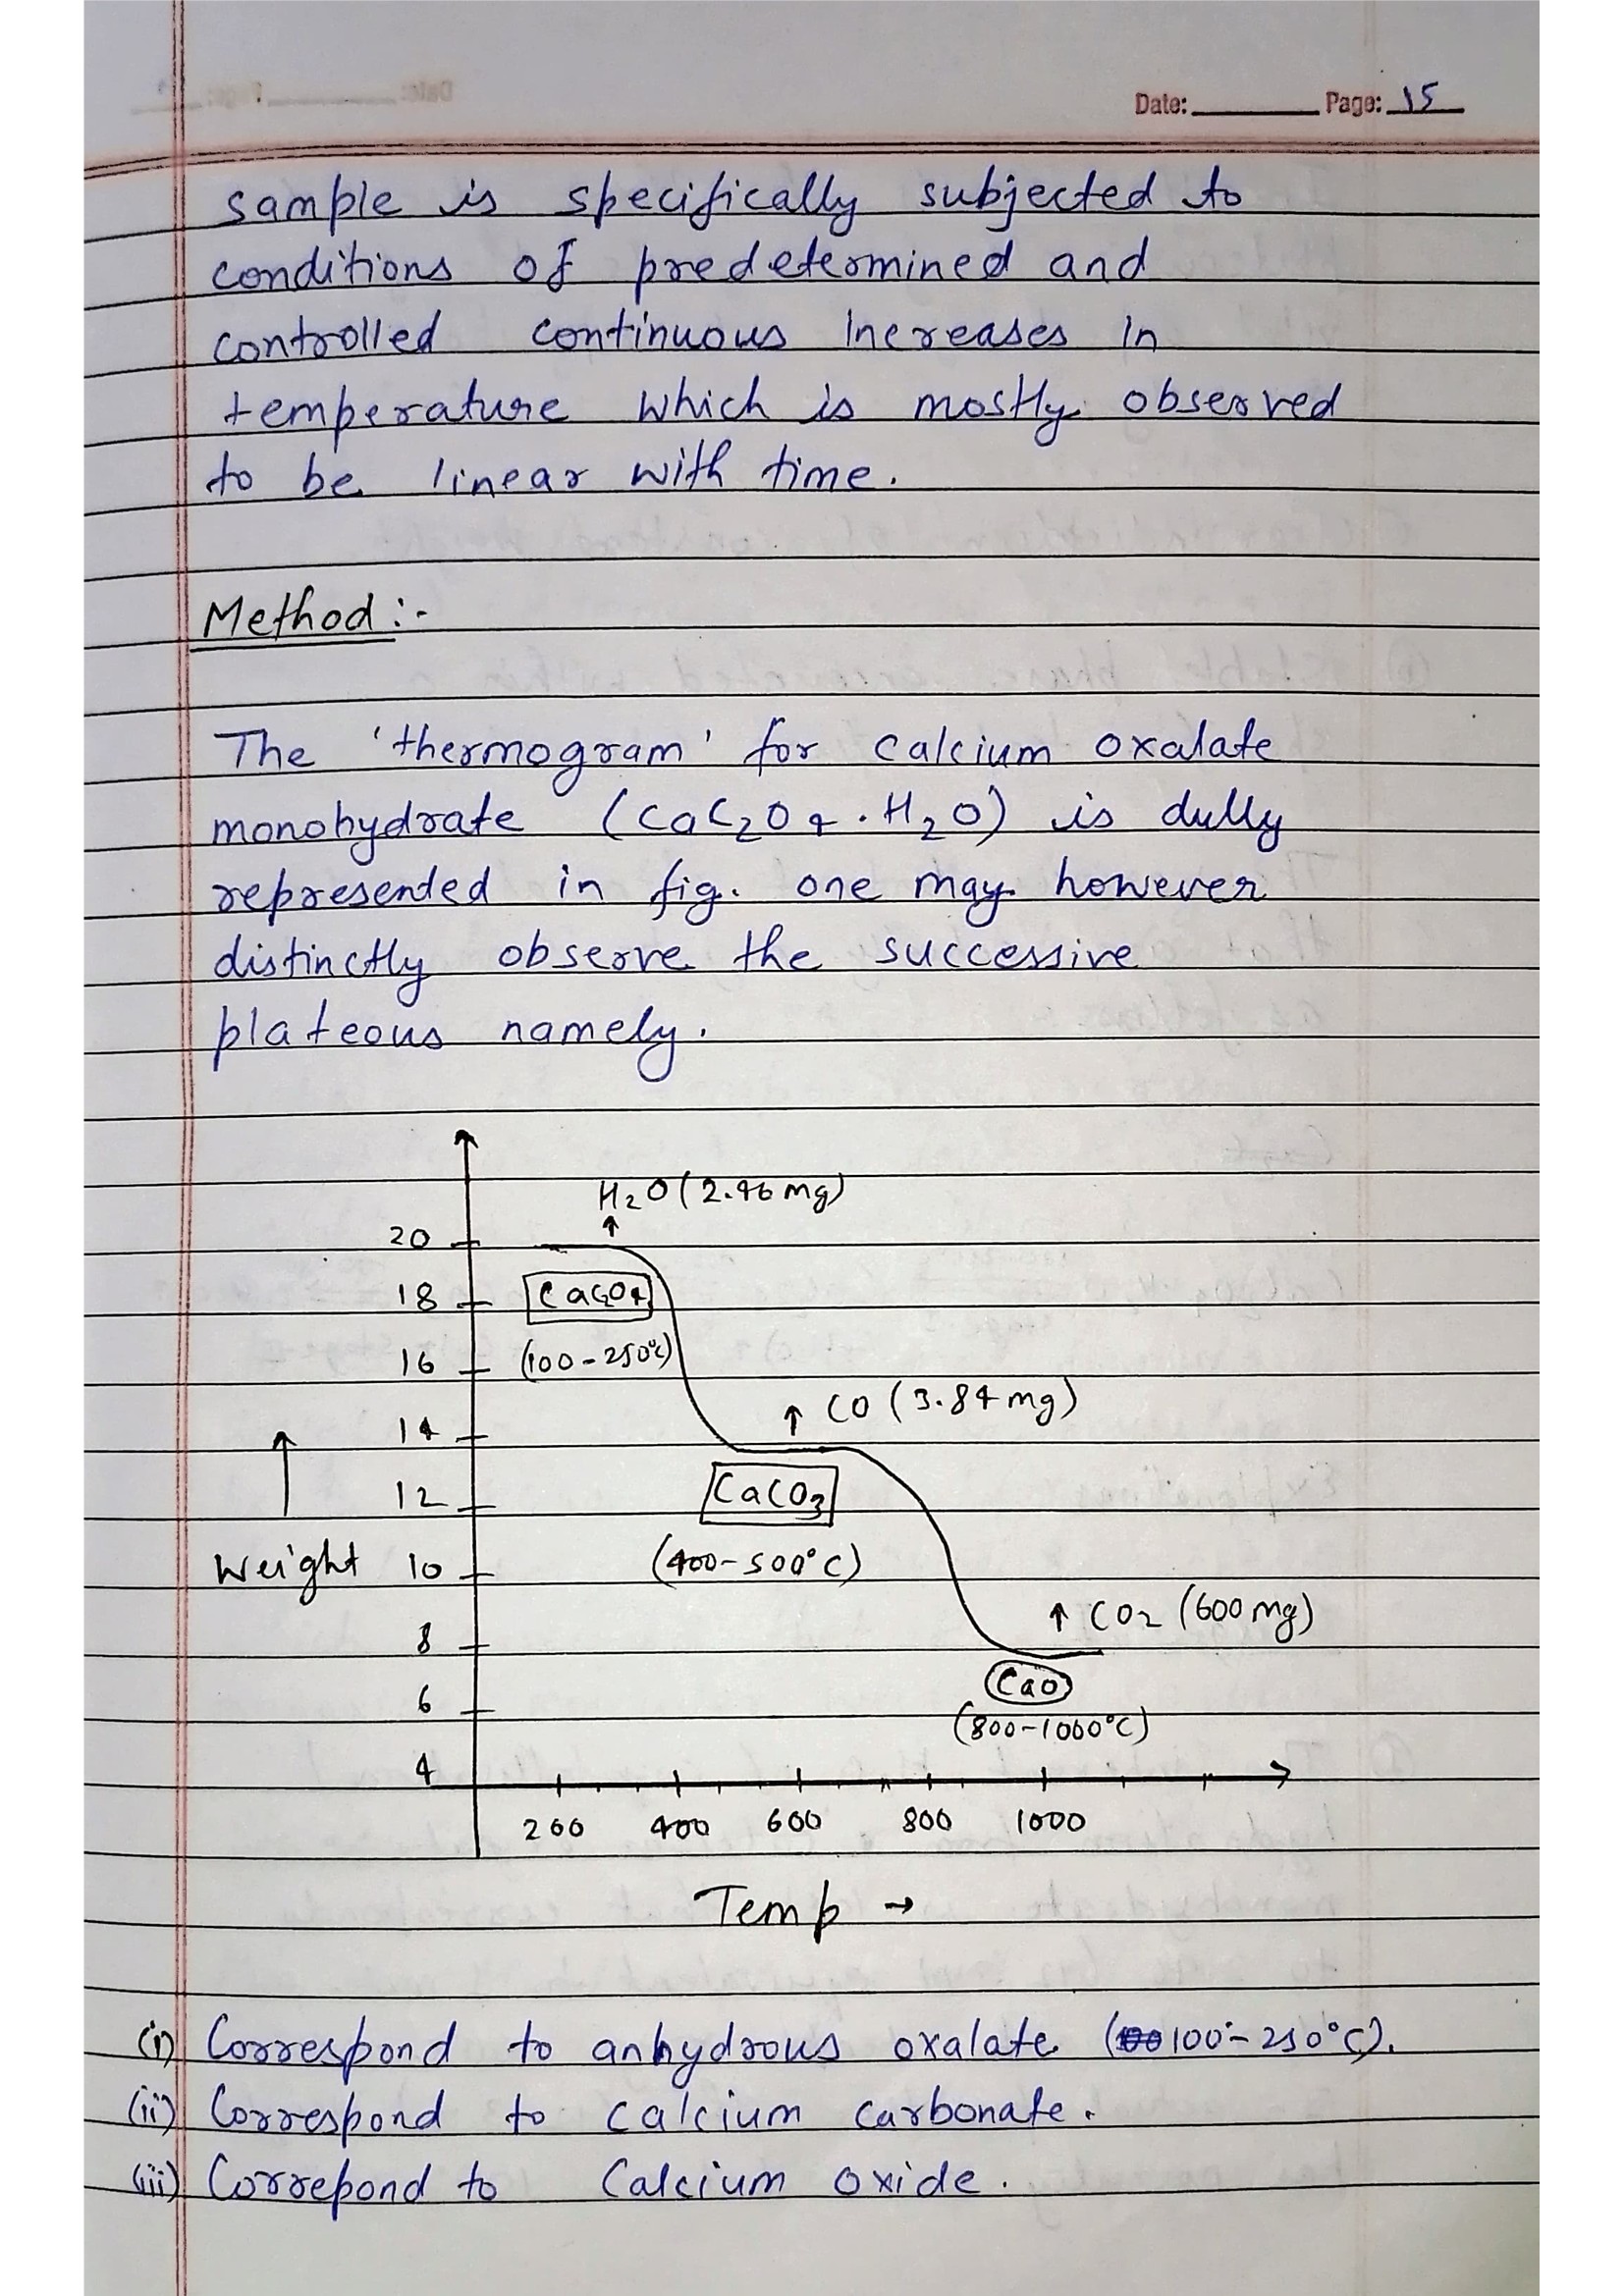 Date: Page: 15
sample is specifically subjected to
conditions of predetermined and
controlled continuous increases in
temperature which is mostly observed
to be linear with time.
Method :-
The 'thermogram' for calcium oxalate
monohydrate (CaC₂O₄.H₂O) is dully
represented in fig. one may however
distinctly observe the successive
plateous namely.
H₂O (2.46 mg)
↑
20
18
CaC₂O₄
16
(100-250°C)
↑ CO (3.84 mg)
14
12
CaCO₃
Weight
10
(400-500°C)
↑ CO₂ (600 mg)
8
CaO
6
(800-1000°C)
4
200 400 600 800 1000
Temp →
(i) Correspond to anhydrous oxalate (100-250°C).
(ii) Correspond to calcium carbonate.
(iii) Correpond to Calcium oxide.